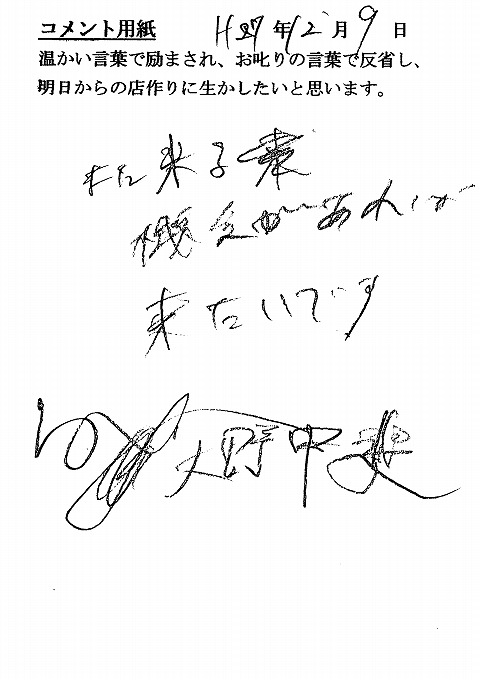 コメント用紙 H27年12月9日
温かい言葉で励まされ、お叱りの言葉で反省し、
明日からの店作りに生かしたいと思います。
また来る
機会があれば
来たいです
大野